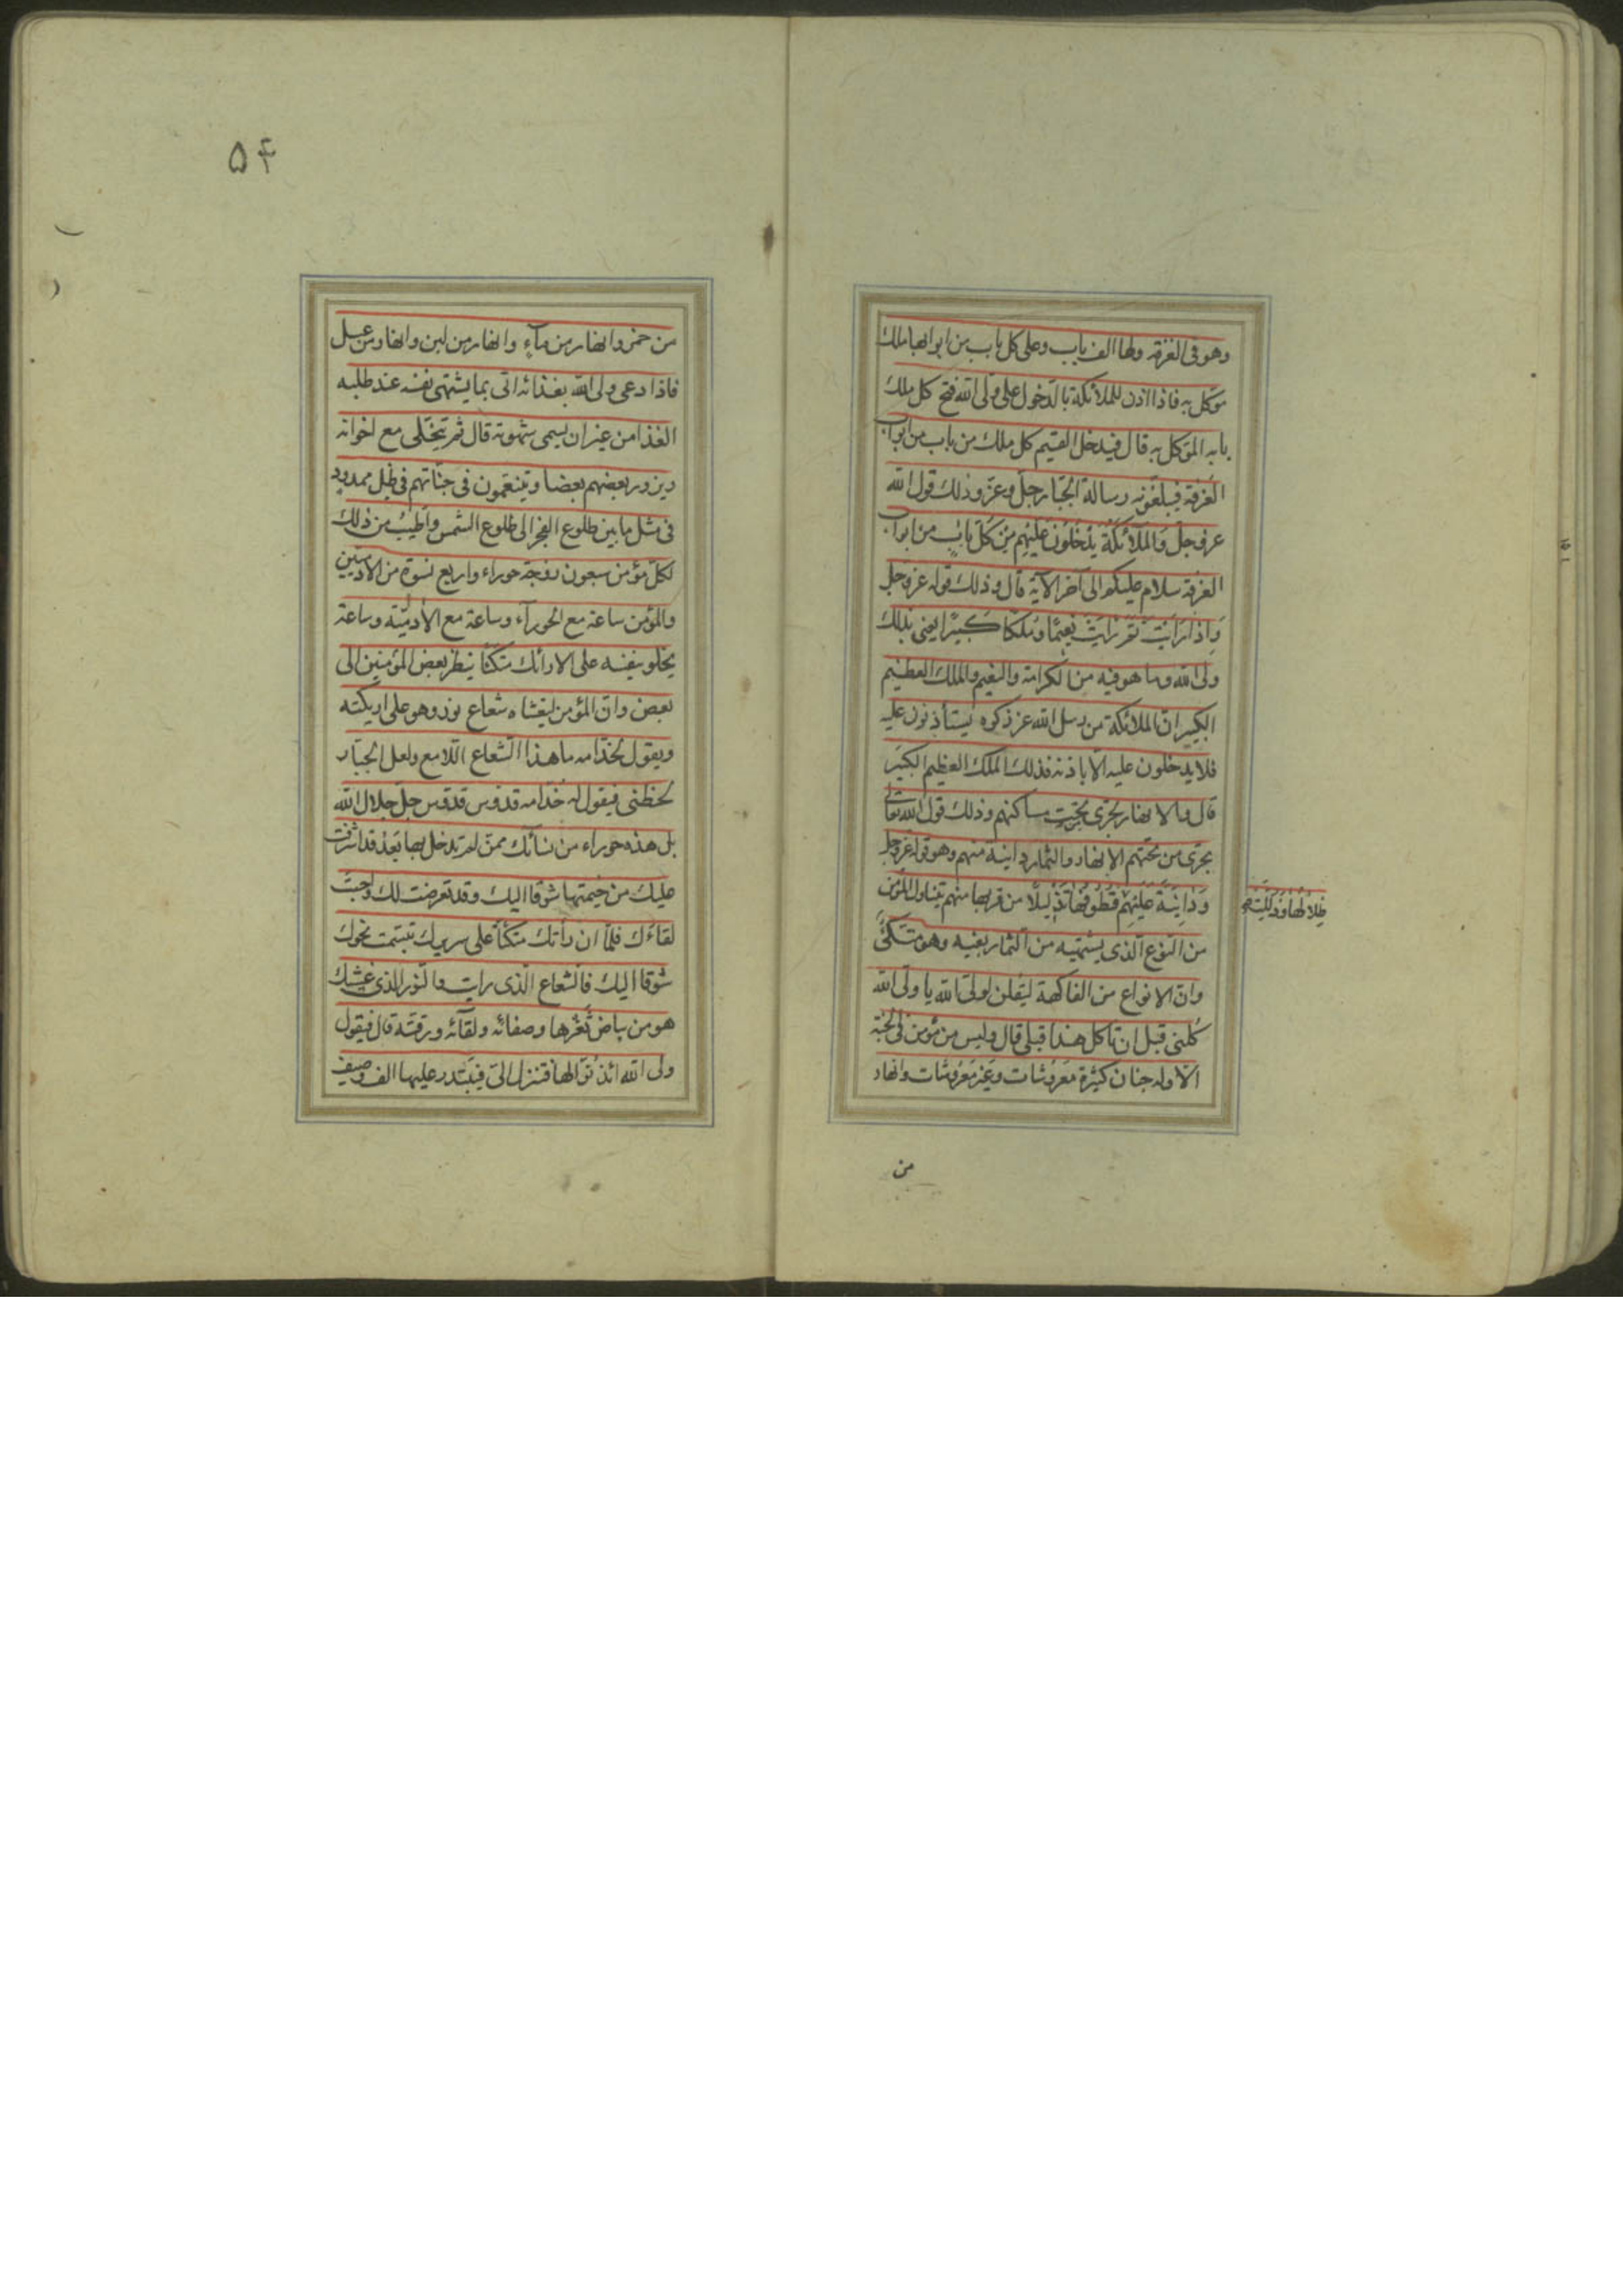 وهو فى الغرفة ولها الف باب وعلى كل باب من ابوابها ملك
موكل به فاذا اذن للملائكة بالدخول على ولى الله فتح كل ملك
بابه الموكل به قال فيدخل القيم كل ملك من باب من ابواب
الغرفة فيبلغونه رسالة الجبار جل وعز وذلك قول الله
عز وجل والملائكة يدخلون عليهم من كل باب من ابواب
الغرفة سلام عليكم الى آخر الآية قال وذلك قوله عز وجل
وَاذا رَايَتَ ثمّ رَايَتَ نعيمًا وَملكًا كَبيرًا يعنى بذلك
ولى الله وما هو فيه من الكرامة والنعيم والملك العظيم
الكبير ان الملائكة من رسل الله عز ذكره يستأذنون عليه
فلا يدخلون عليه الا باذنه فذلك الملك العظيم الكبير
قال والانهار تجرى تحت مساكنهم وذلك قول الله تعالى
تجرى من تحتهم الانهار والثمار دانية منهم وهو قوله عز وجل
وَدانِيَةً عَلَيْهِمْ قُطُوفُهَا تَذْلِيلًا من قربها منهم يتناول المؤمن
ظِلَالُهَا وَذُلِّلَتْ
من النوع الذى يشتهيه من الثمار بفيه وهو متكئ
وان الانواع من الفاكهة ليقلن لولى الله يا ولى الله
كلنى قبل ان تأكل هذا قبلى قال وليس من مؤمن فى الجنة
الا وله جنان كثيرة معروشات وغير معروشات وانهار
من
۵۴
من خمر وانهار من مآء وانهار من لبن وانهار من عسل
فاذا دعى ولى الله بغذائه اتى بما يشتهى نفسه عند طلبه
الغذا من غير ان يسمى شهوته قال ثم يتخلى مع اخوانه
ويزور بعضهم بعضا ويتنعمون فى جناتهم فى ظل ممدود
فى مثل ما بين طلوع الفجر الى طلوع الشمس واطيب من ذلك
لكل مؤمن سبعون زوجة حوراء واربع نسوة من الادميين
والمؤمن ساعة مع الحورآء وساعة مع الأدميّة وساعة
يخلو بنفسه على الارائك متكئا ينظر بعض المؤمنين الى
بعض وان المؤمن ليغشاه شعاع نور وهو على اريكته
ويقول لخدّامه ما هذا الشعاع اللامع ولعل الجبّار
لحظنى فيقول له خدامه قدوس قدوس جل جلال الله
بل هذه حوراء من نسائك ممن لم تدخل بها بعد قد اشرفت
عليك من خيمتها شوقا اليك وقد تعرضت لك واحبت
لقاءك فلمّا ان رأتك متكئا على سريرك تبسمت نحوك
شوقا اليك فالشعاع الذى رايت والنور الذى غشيك
هو من بياض ثغرها وصفائه ونقآئه ورقته قال فيقول
ولى الله ائذنوا لها فتنزل الىّ فيبتدر عليها الف وصيف